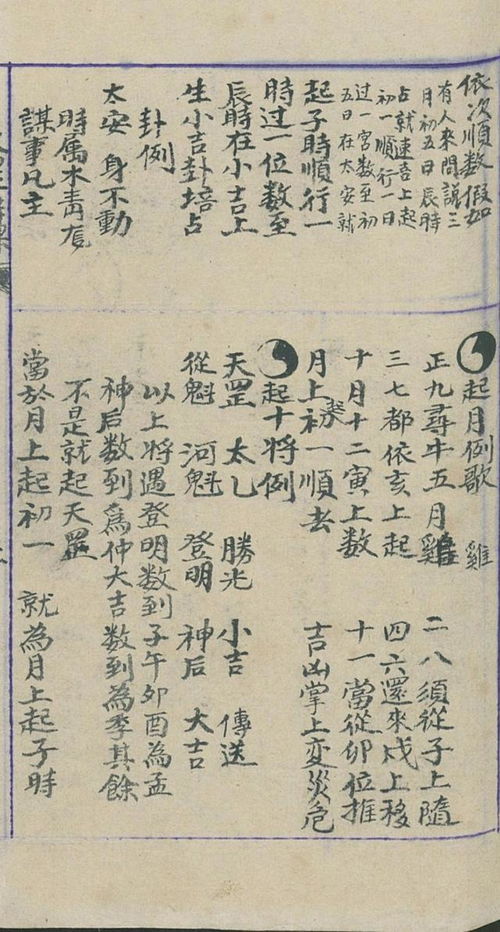 依次順数假如
有人來問說三
月初五日辰時
占就速喜上起
初一順行一日
过一宮数至初
五日在太安就
起子時順行一
時过一位数至
辰時在小吉上
生小吉卦培占
卦例
太安 身不動
時属木青
謀事凡主
起月例歌 雞
正九尋牛五月雞 二八須從子上隨
三七都依亥上起 四六還來戍上移
十月十二寅上数 十一當從卯位推
月上初一順去 吉凶掌上变災危
起十将例
天罡 太乙 勝光 小吉 傳送
從魁 河魁 登明 神后 大吉
以上将遇登明数到子午卯酉為孟
神后数到爲仲大吉数到為季其餘
不是就起天罡
當於月上起初一 就為月上起子時